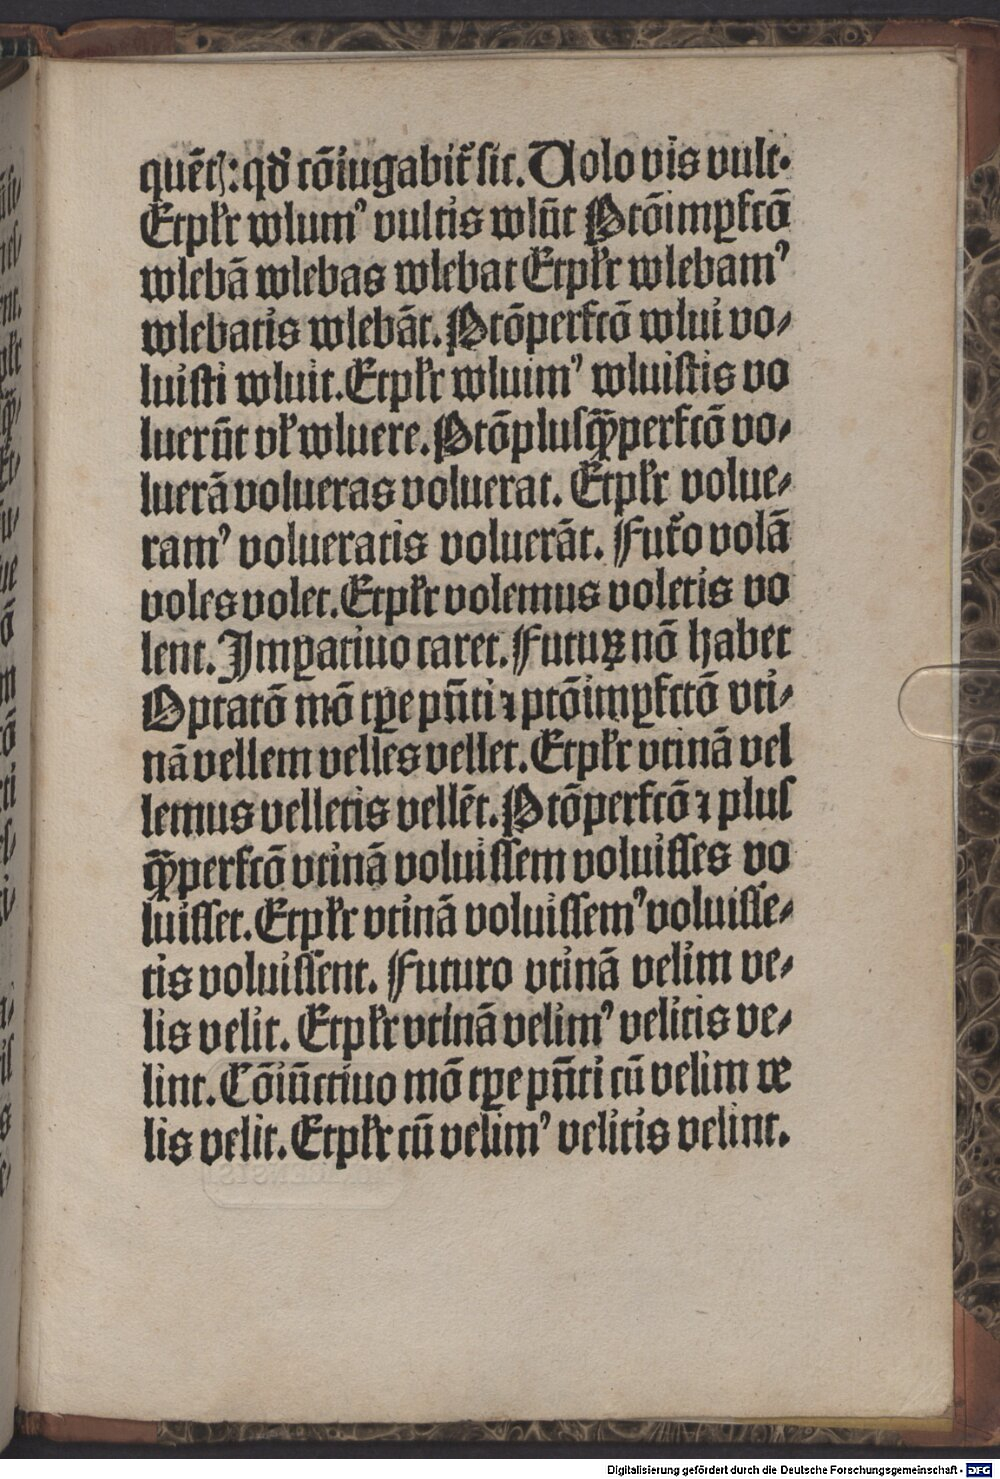 quēt᷒: qđ cōiugabit̉ sic. Uolo vis vult.
Etpłr wlumꝰ vultis wlūt Ptōimꝑfctō
wlebā wlebas wlebat Etpłr wlebamꝰ
wlebatis wlebāt. Ptōperfctō wlui vo⸗
luisti wluit. Etpłr wluimꝰ wluistis vo
luerūt vł wluere. Ptōplusꝙ̄perfctō vo⸗
luerā volueras voluerat. Etpłr volue⸗
ramꝰ volueratis voluerāt. Fut̉o volā
voles volet. Etpłr volemus voletis vo
lent. Imꝑatiuo caret. Futuꝝ nō habet
Optatō mō tꝑe pn̄ti ⁊ ptōimꝑfctō vti⸗
nā vellem velles vellet. Etpłr vtinā vel
lemus velletis vellēt. Ptōperfctō ⁊ plus
ꝙ̄perfctō vtinā voluissem voluisses vo
luisset. Etpłr vtinā voluissemꝰ voluisse⸗
tis voluissent. Futuro vtinā velim ve⸗
lis velit. Etpłr vtinā velimꝰ velitis ve⸗
lint. Cōiūctiuo mō tꝑe pn̄ti cū velim ve
lis velit. Etpłr cū velimꝰ velitis velint.
Digitalisierung gefördert durch die Deutsche Forschungsgemeinschaft - DFG